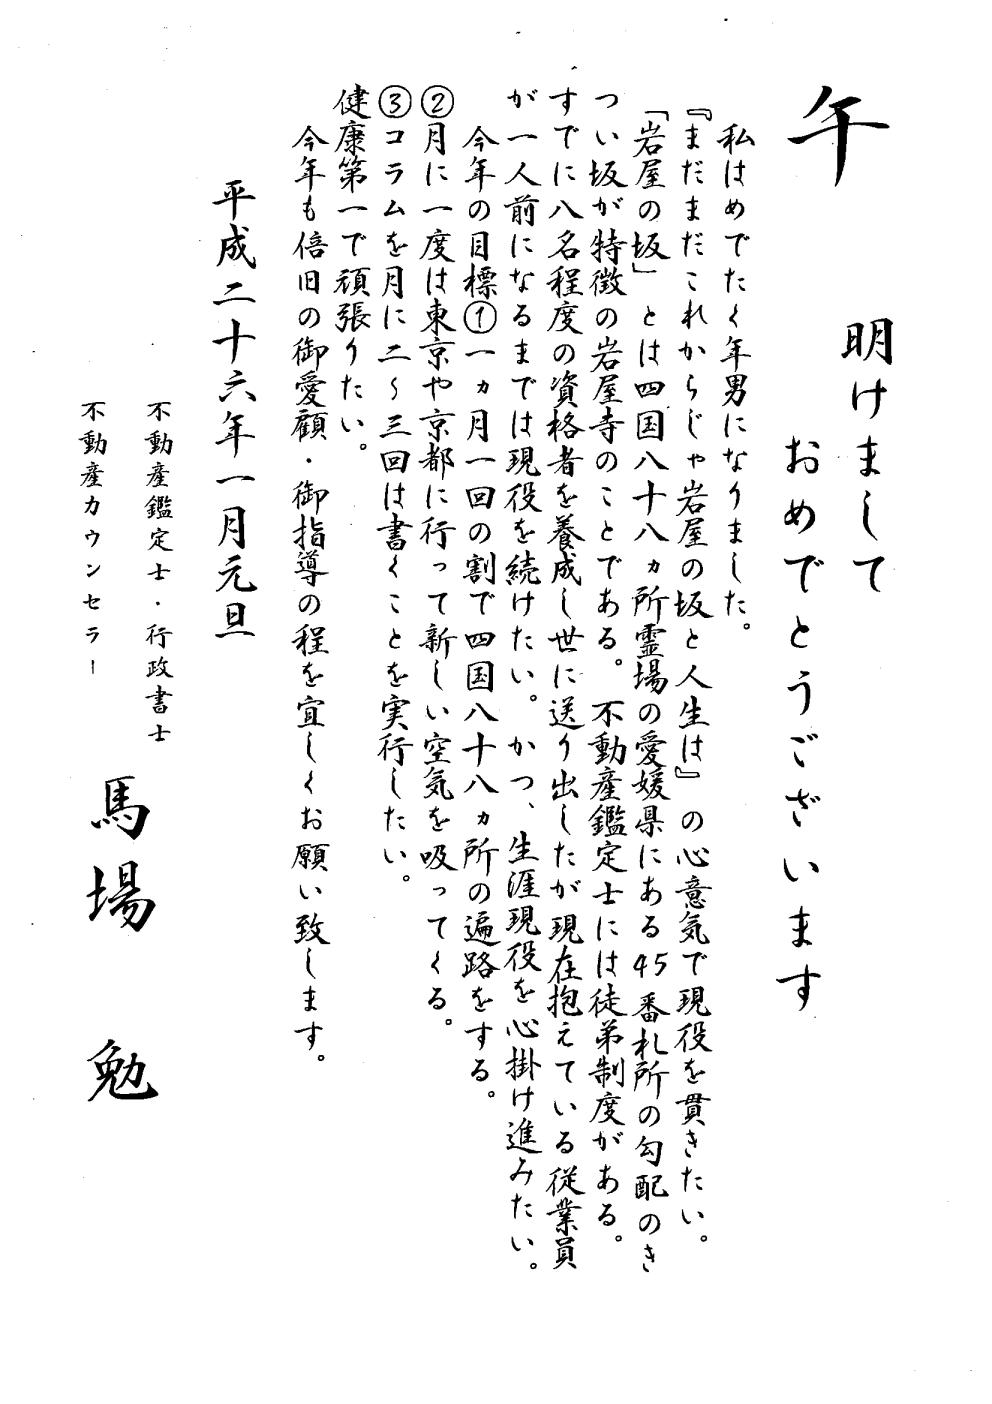 午
明けまして
おめでとうございます
私はめでたく年男になりました。
『まだまだこれからじゃ岩屋の坂と人生は』の心意気で現役を貫きたい。
「岩屋の坂」とは四国八十八ヵ所霊場の愛媛県にある45番札所の勾配のき
つい坂が特徴の岩屋寺のことである。不動産鑑定士には徒弟制度がある。
すでに八名程度の資格者を養成し世に送り出したが現在抱えている従業員
が一人前になるまでは現役を続けたい。かつ、生涯現役を心掛け進みたい。
今年の目標①一ヵ月一回の割で四国八十八ヵ所の遍路をする。
②月に一度は東京や京都に行って新しい空気を吸ってくる。
③コラムを月に二～三回は書くことを実行したい。
健康第一で頑張りたい。
今年も倍旧の御愛顧・御指導の程を宜しくお願い致します。
平成二十六年一月元旦
不動産鑑定士・行政書士
不動産カウンセラー
馬場 勉